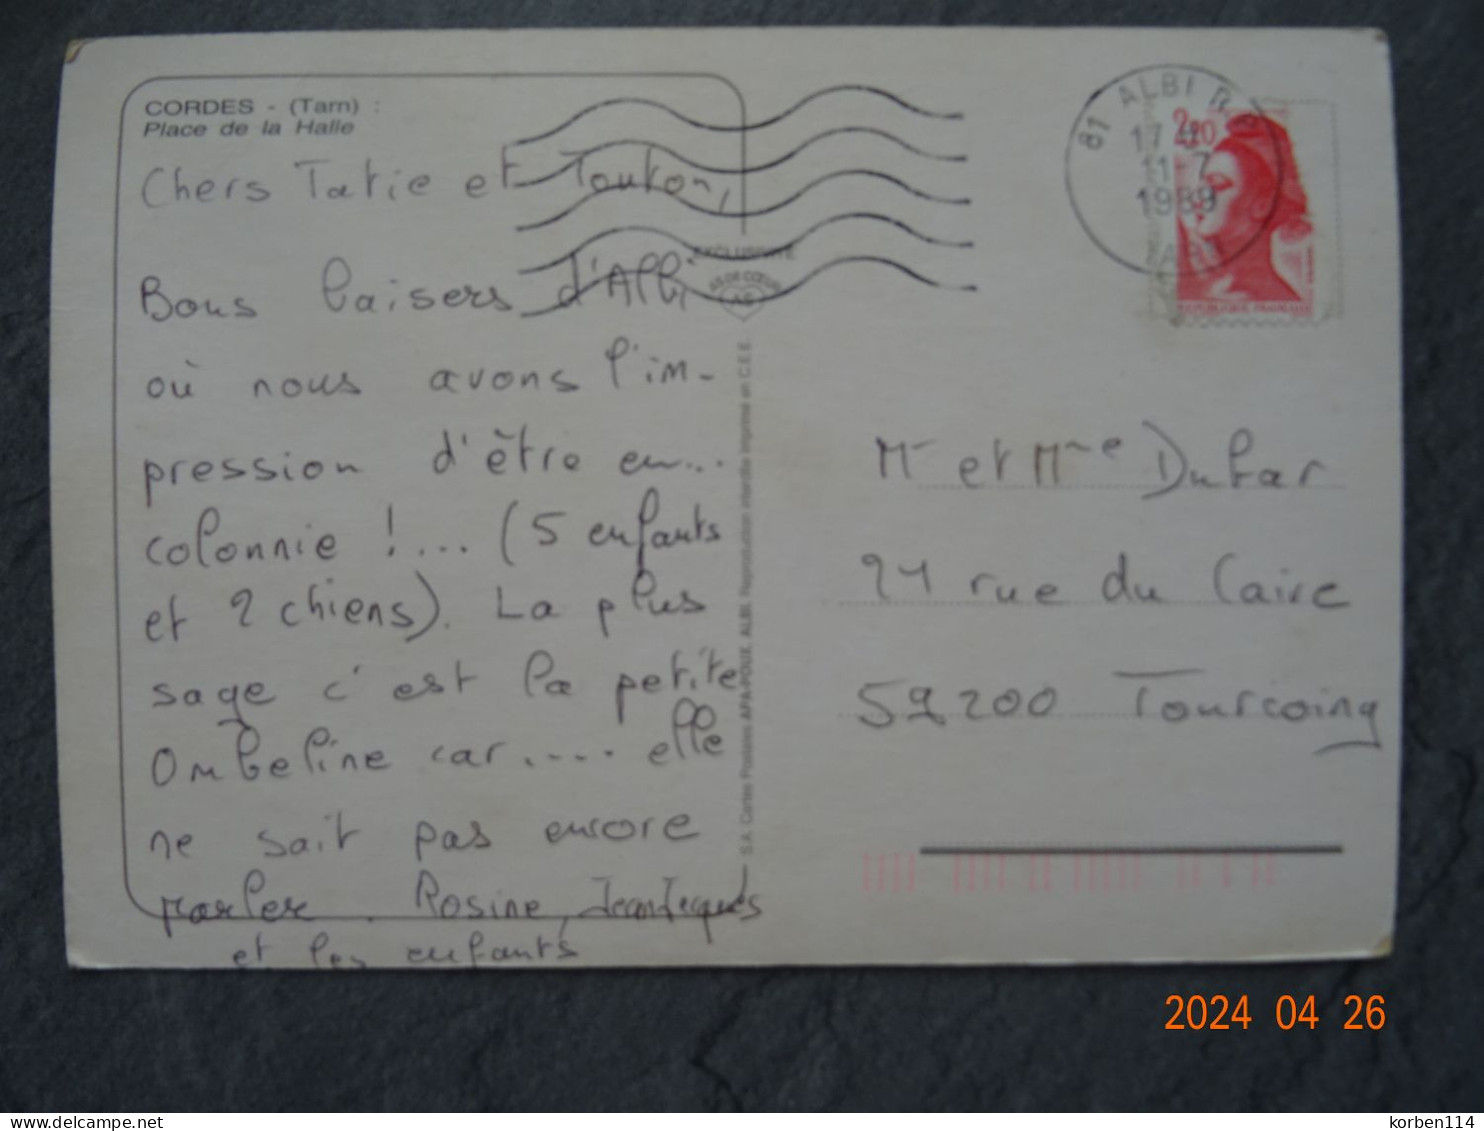 CORDES - (Tarn) :
Place de la Halle
Chers Tatie et Tonton,
Bons baisers d'Albi
où nous avons l'im-
pression d'être en...
colonnie !... (5 enfants
et 2 chiens). La plus
sage c'est la petite
Ombeline car..... elle
ne sait pas encore
parler. Rosine, JeanJacques
et les enfants
EXCLUSIVITÉ
AS DE CŒUR
S.A. Cartes Postales APA-POUX, ALBI. Reproduction interdite Imprimé en C.E.E.
81 ALBI R.P.
17 H
11 7
1989
TARN
2,20
REPUBLIQUE FRANÇAISE
Mr et Mme Dubar
21 rue du Caire
59200 Tourcoing
2024 04 26
delcampe.net
korben114